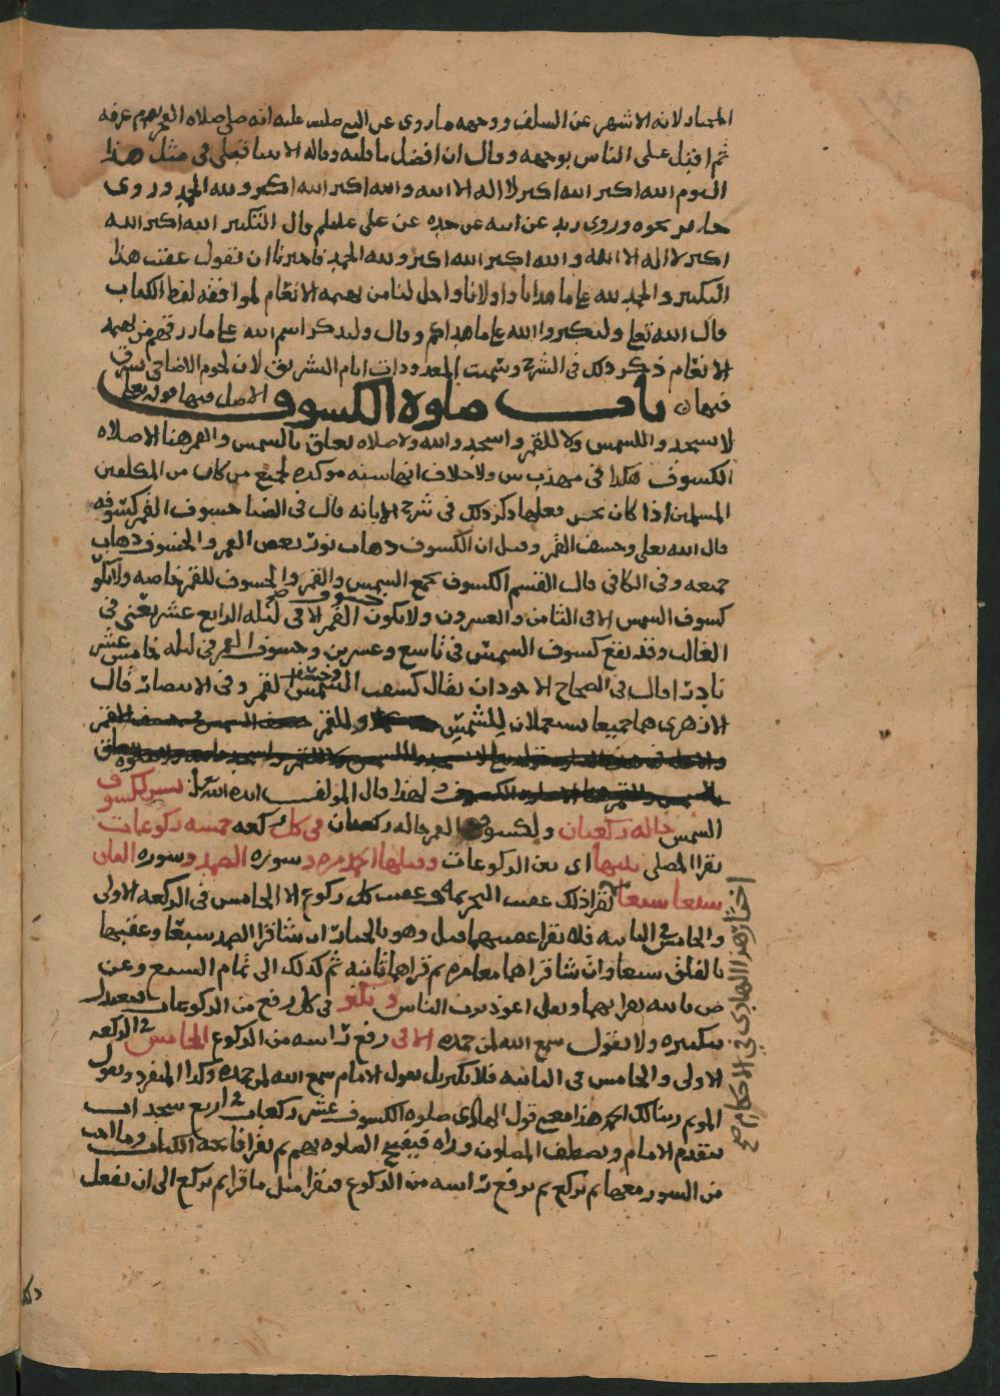 المختار لانه الاشهر عن السلف ووجهه ماروى عن النبي صلى الله عليه انه صلى صلاة الفجر يوم عرفه
ثم اقبل على الناس بوجهه وقال ان افضل ما قلته وقاله الانبيا قبلي في مثل هذا
اليوم الله اكبر الله اكبر لا اله الا الله والله اكبر الله اكبر ولله الحمد وروى
جابر نحوه وروى زيد عن ابيه عن جده عن علي عليلم قال التكبير الله اكبر الله
اكبر لا اله الا الله والله اكبر الله اكبر ولله الحمد فاخبرنا ان نقول عقيب هذا
التكبير والحمد لله على ما هدانا واولانا واحل لنا من بهيمه الانعام لموافقه لفظ الكتاب
قال الله تعلى ولتكبروا الله على ما هداكم وقال وليذكر اسم الله على ما رزقهم من بهيمه
الانعام ذكر ذلك في الشرح وسميت المعدودات ايام التشريق لان لحوم الاضاحي تشرق
فيها باب صلوة الكسوف الاصل فيها قوله تعلى
لا تسجدوا للشمس ولا للقمر واسجدوا لله ولا صلاه تعلق بالشمس والقمر هنا الا صلاه
الكسوف هكذا في مهذب ش ولا خلاف انها سنه موكده لجميع من كان من المكلفين
المسلمين اذا كان يحسن فعلها ذكر ذلك في شرح الابانه قال في الضيا خسوف القمر كسوفه
قال الله تعلى وخسف القمر وقيل ان الكسوف ذهاب نور بعض القمر والخسوف ذهاب
جميعه وفي الكافي قال القسم الكسوف يجمع الشمس والقمر والخسوف للقمر خاصه ولا يكون
كسوف الشمس الا في الثامن والعشرون ولا يكون خسوف القمر الا في ليله الرابع عشر يعني في
الغالب وقد يقع كسوف الشمس في تاسع وعشرين وخسوف القمر في ليله خامس عشر
نادرا قال في الصحاح الاجود ان يقال كسفت الشمس وخسف القمر وفي الانتصار قال
الازهري هما جميعا يستعملان للشمس وللقمر
ولهذا قال المولف ايده الله تعلى يسن لكسوف
الشمس حاله ركعتان ولخسوف القمر حاله ركعتان في كل ركعه خمسه ركوعات
يقرا المصلي بينها اي بين الركوعات وقبلها الحمد مره وسوره الصمد وسوره الفلق
سبعا سبعا يقرا ذلك عقيب التحريمه وعقيب كل ركوع الا الخامس في الركعه الاولى
والخامس في الثانيه فلا يقرا عقيبهما قيل وهو بالخيار ان شا قرا الصمد سبعا وعقبها
بالفلق سبعا وان شا قراهما معا مره ثم قراهما ثانيه ثم كذلك الى تمام السبع وعن
ص بالله يقرا بهما وبقل اعوذ برب الناس ويكبر في كل رفع من الركوعات فيعتدل
بتكبيره ولا يقول سمع الله لمن حمده الا في رفع راسه من الركوع الخامس في الركعه
الاولى والخامس في الثانيه فلا يكبر بل يقول الامام سمع الله لمن حمده وكذا المنفرد ويقول
الموتم ربنا لك الحمد هذا معنى قول الهادي صلوه الكسوف عشر ركعات في اربع سجدات
يتقدم الامام ويصطف المصلون وراه فيفتتح الصلوه بهم ثم يقرا فاتحه الكتاب وما احب
من السور معها ثم يركع ثم يرفع راسه من الركوع فيقرا مثل ما قرا ثم يركع الى ان يفعل
اختار هذا الهادي في الاحكام صح